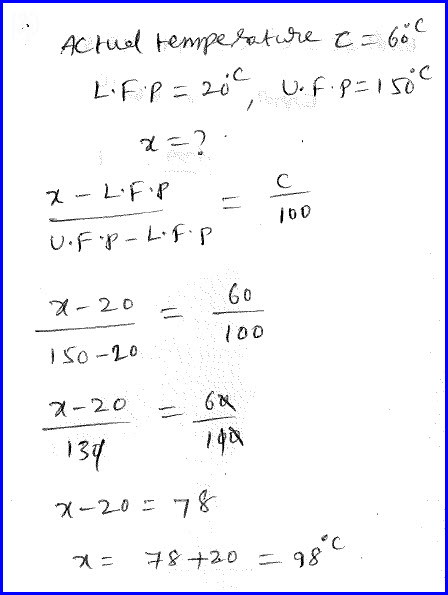 Actual temperature C = 60°C
L.F.P = 20°C, U.F.P = 150°C
x = ?
x - L.F.P / U.F.P - L.F.P = C / 100
x - 20 / 150 - 20 = 60 / 100
x - 20 / 130 = 60 / 100
x - 20 = 78
x = 78 + 20 = 98°C